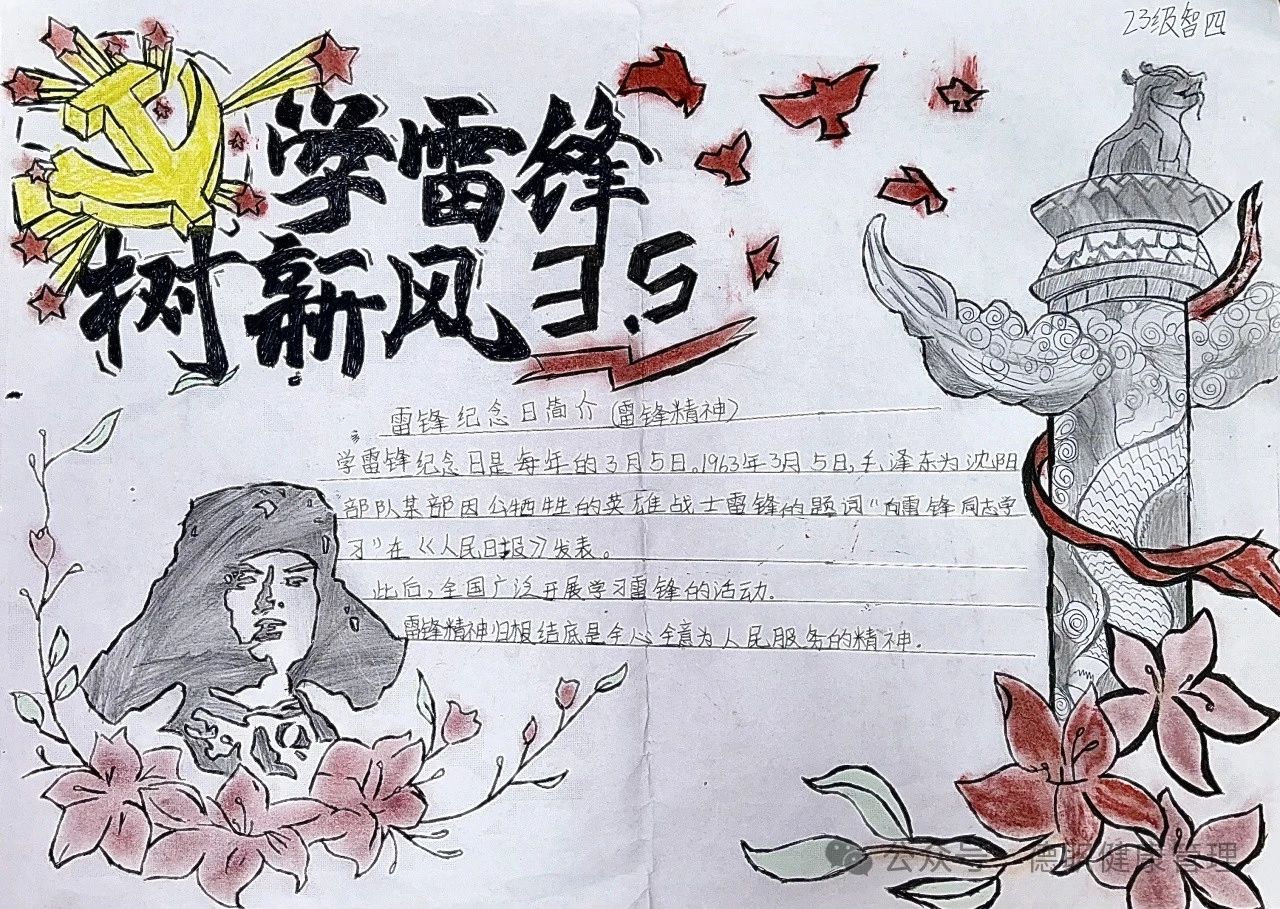 23级智四
学雷锋
树新风 3.5
雷锋纪念日简介(雷锋精神)
学雷锋纪念日是每年的3月5日。1963年3月5日,毛泽东为沈阳
部队某部因公牺牲的英雄战士雷锋的题词“向雷锋同志学
习”在《人民日报》发表。
此后,全国广泛开展学习雷锋的活动。
雷锋精神归根结底是全心全意为人民服务的精神.
公众号 德 健康管理